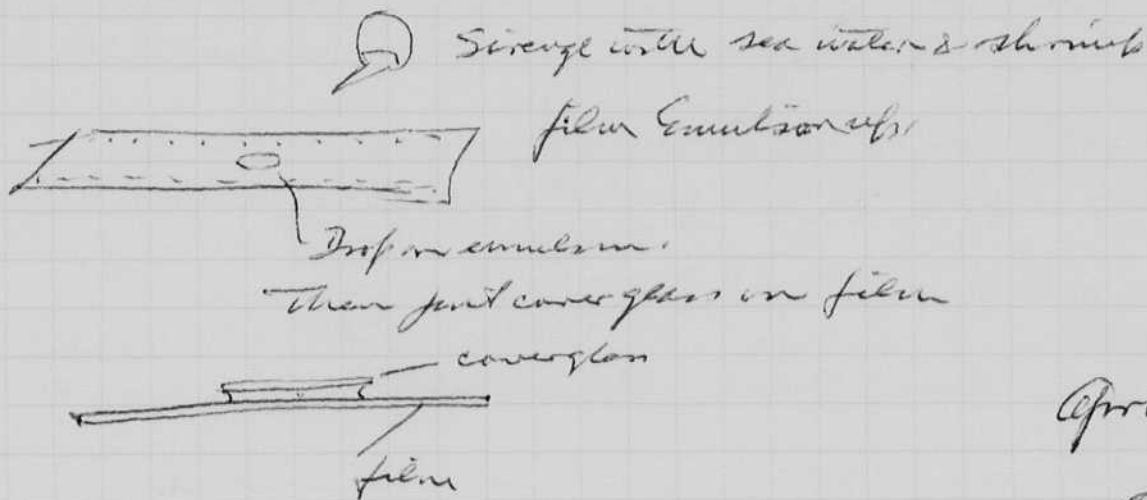 Sirenge with sea water & shrimp
film Emulsion up.
Drop on emulsion.
Then put cover glass on film
coverglass
film